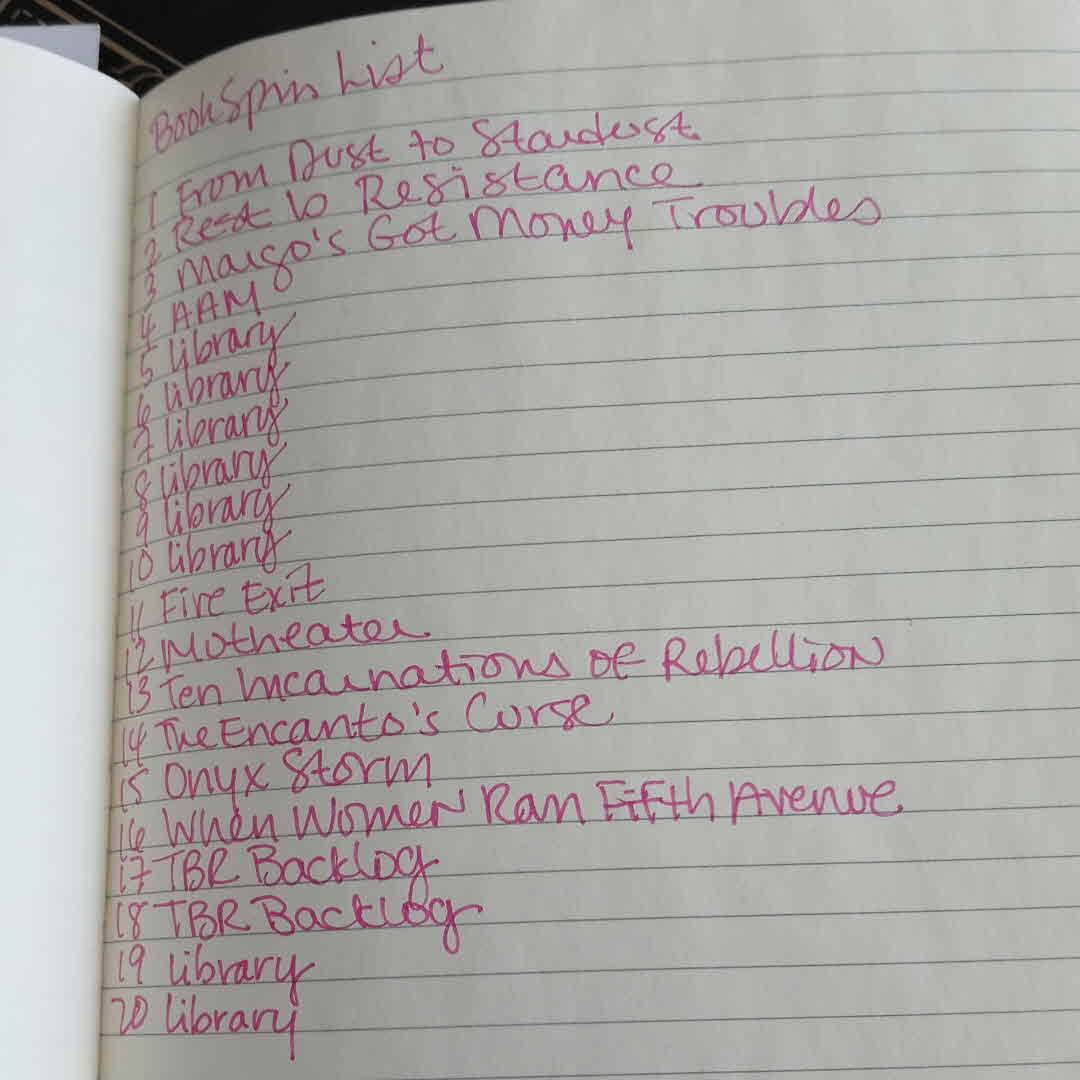 BookSpin List
1 From Dust to Stardust
2 Rest to Resistance
3 Margo's Got Money Troubles
4 AAM
5 library
6 library
7 library
8 library
9 library
10 library
11 Fire Exit
12 Motheater
13 Ten Incarnations of Rebellion
14 The Encanto's Curse
15 Onyx Storm
16 When Women Ran Fifth Avenue
17 TBR Backlog
18 TBR Backlog
19 library
20 library